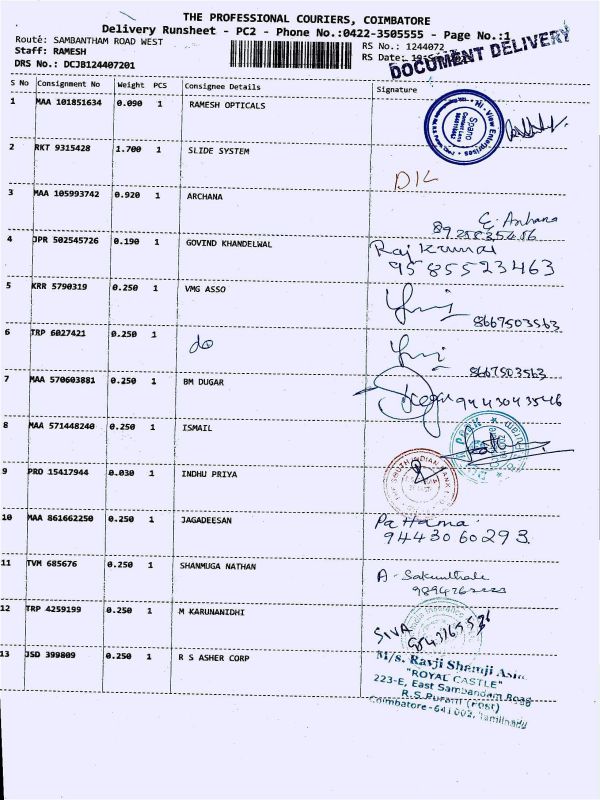 THE PROFESSIONAL COURIERS, COIMBATORE
Delivery Runsheet - PC2 - Phone No.:0422-3505555 - Page No.:1
Route: SAMBANTHAM ROAD WEST
RS No.: 1244072
Staff: RAMESH
RS Date:
DOCUMENT DELIVERY
DRS No.: DCJB124407201
S No Consignment No Weight PCS Consignee Details Signature
1 MAA 101851634 0.090 1 RAMESH OPTICALS
Hi-View Enterprises
2 RKT 9315428 1.700 1 SLIDE SYSTEM
DIL
3 MAA 105993742 0.920 1 ARCHANA
8925835456
4 JPR 502545726 0.190 1 GOVIND KHANDELWAL
Raj Kumar
9585523463
5 KRR 5790319 0.250 1 VMG ASSO
8667503563
6 TRP 6027421 0.250 1 do
8667503563
7 MAA 570603881 0.250 1 BM DUGAR
9443043546
8 MAA 571448240 0.250 1 ISMAIL
9 PRO 15417944 0.030 1 INDHU PRIYA
SOUTH INDIAN BANK
10 MAA 861662250 0.250 1 JAGADEESAN
Pattama
9443060293
11 TVM 685676 0.250 1 SHANMUGA NATHAN
A. Sakunthala
12 TRP 4259199 0.250 1 M KARUNANIDHI
SIVA
13 JSD 399809 0.250 1 R S ASHER CORP
M/s. Ravji Shamji Asia
"ROYAL CASTLE"
223-E, East Sambandam Road
R.S. Puram (Post)
Coimbatore-641 002, Tamilnadu